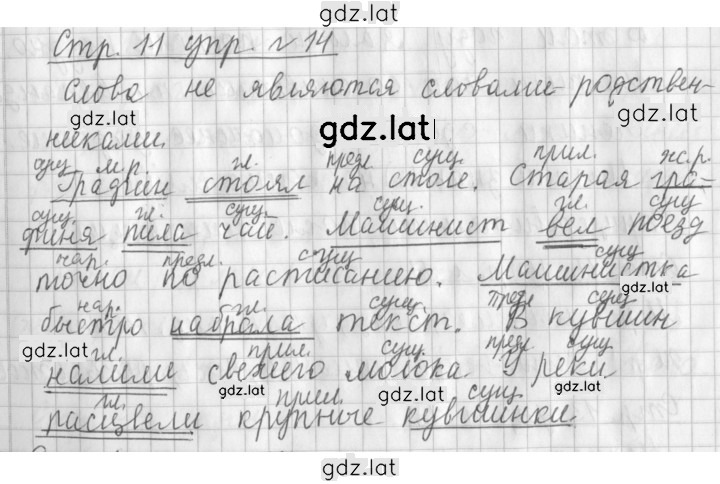 gdz.lat
Стр. 11 упр. № 14
Слова не являются словами родствен-
gdz.lat
никами.
сущ м.р. гл. предл сущ. прил. ж.р.
Графин стоял на столе. Старая гра-
сущ. гл. сущ. сущ. гл. сущ
финя пила чай. Машинист вел поезд
нар. предл. сущ сущ
точно по расписанию. Машинистка
gdz.lat
нар. гл. сущ. предл сущ
быстро набрала текст. В кувшин
gdz.lat гл. прил. сущ. предл сущ
налили свежего молока У реки
gdz.lat gdz.lat
гл. прил. сущ
расцвели крупные кувшинки.
gdz.lat